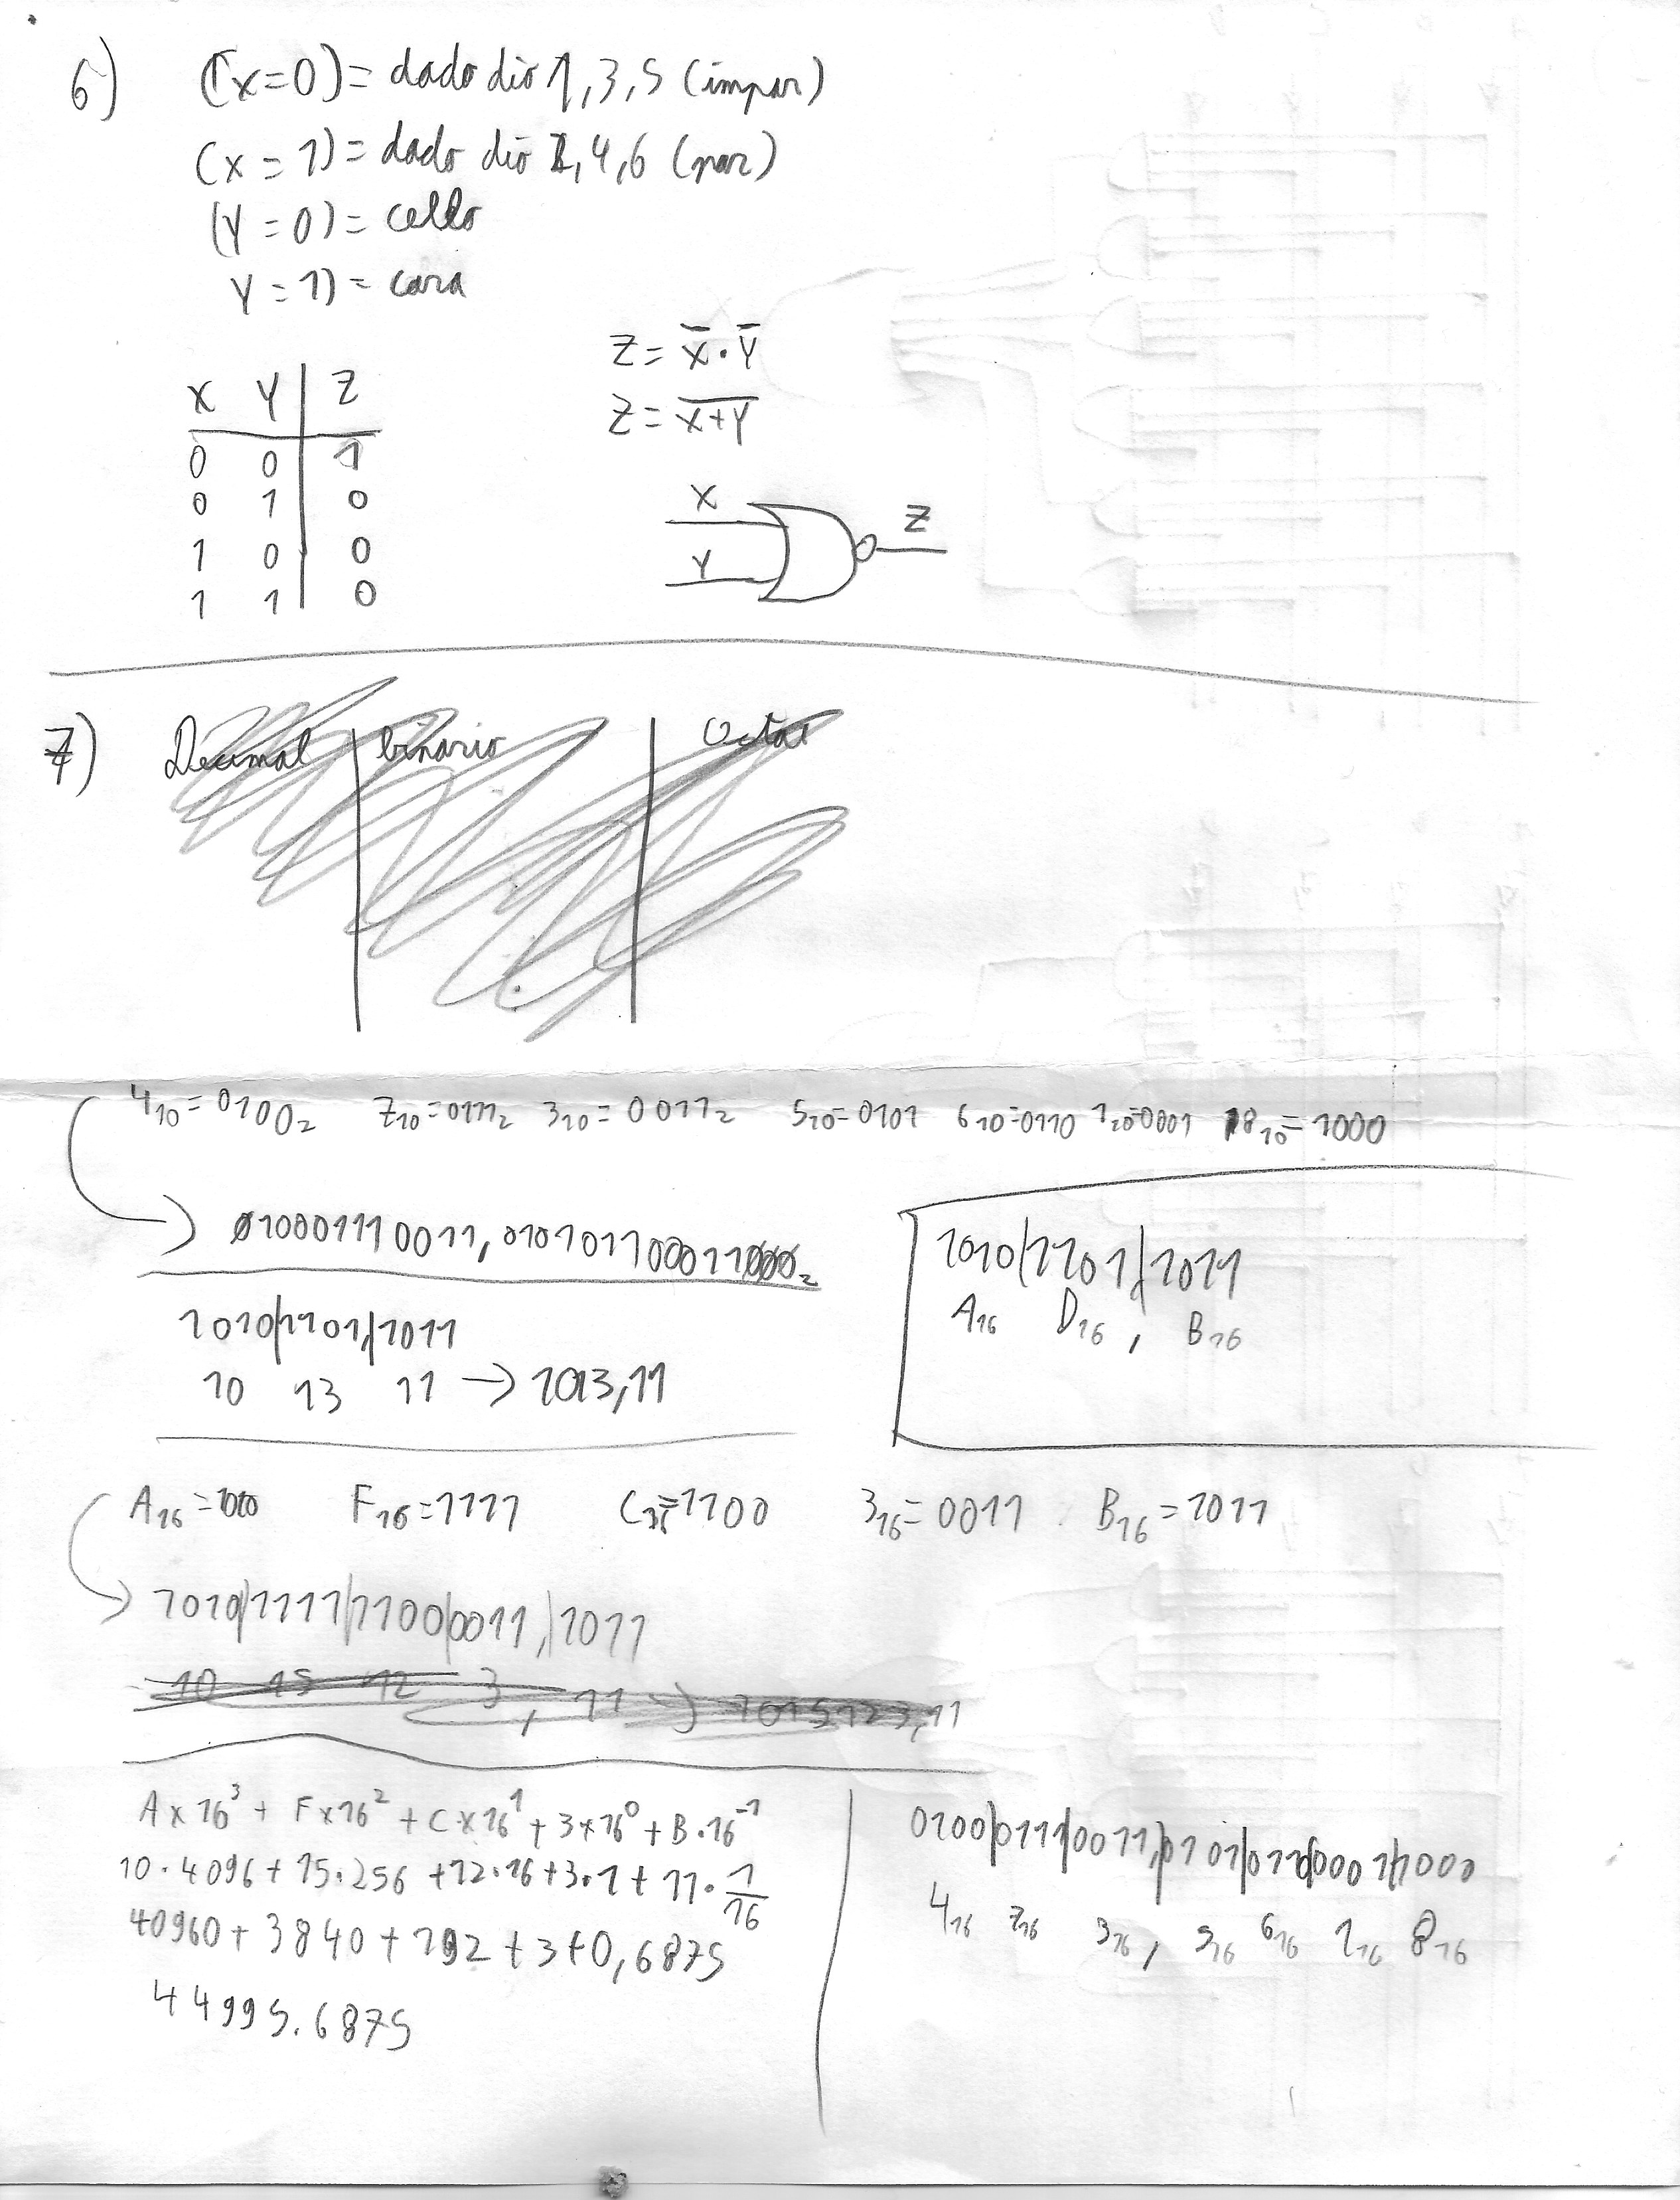 6) (x=0)= dado dio 1,3,5 (impar)
(x = 1)= dado dio 2,4,6 (par)
(Y = 0)= cello
Y = 1) = cara
Z = X̅ · Y̅
X Y Z
Z = \overline{X+Y}
0 0 1
0 1 0
1 0 0
1 1 0
X
Y
Z
7) Decimal binario Octal
4₁₀ = 0100₂ 7₁₀=0111₂ 3₁₀=0011₂ 5₁₀=0101 6₁₀=0110 1₁₀=0001 8₁₀=1000
010001110011,0101011000011000₂
1010|1101,|1011
10 13 11 → 1013,11
1010|1101,|1011
A₁₆ D₁₆ , B₁₆
A₁₆=1010 F₁₆=1111 C₁₆=1100 3₁₆=0011 B₁₆=1011
1010|1111|1100|0011,|1011
10 15 12 3 , 11 → 1015123,11
A×16³ + F×16² + C×16¹ + 3×16⁰ + B·16⁻¹
10·4096 + 15·256 + 12·16 + 3·1 + 11·1/16
40960 + 3840 + 192 + 3 + 0,6875
44995.6875
0100|0111|0011,|0101|0110|0001|1000
4₁₆ 7₁₆ 3₁₆ , 5₁₆ 6₁₆ 1₁₆ 8₁₆